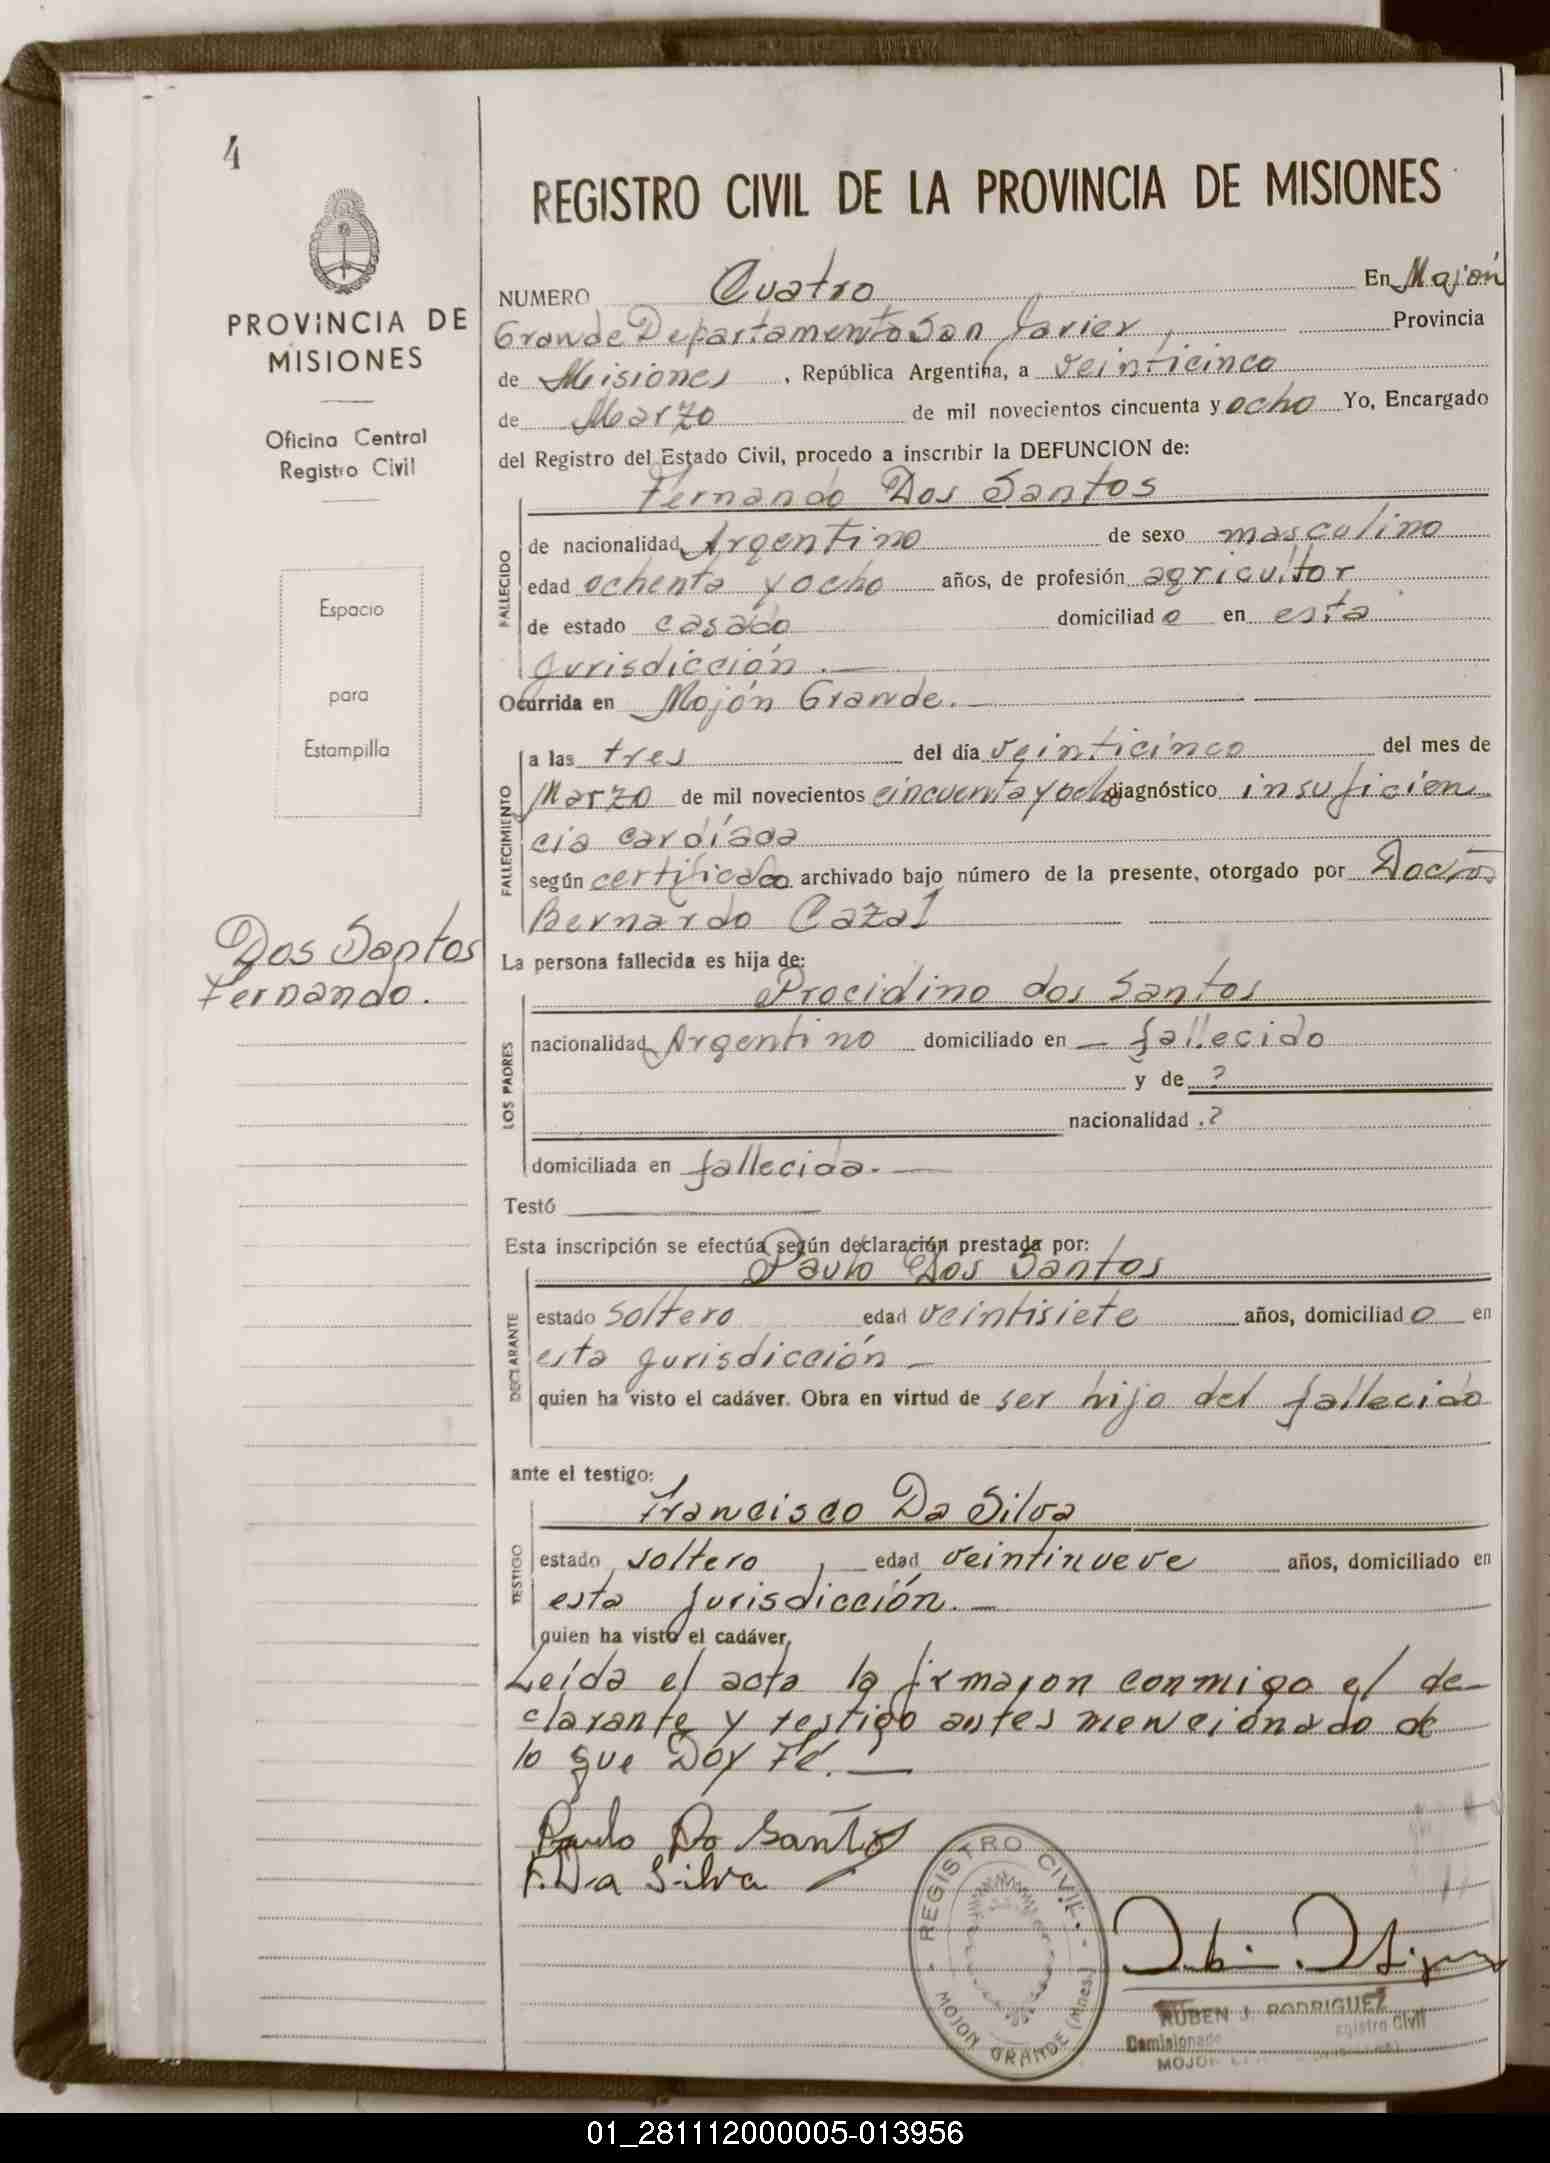 4
PROVINCIA DE
MISIONES
Oficina Central
Registro Civil
Espacio
para
Estampilla
Dos Santos
Fernando.
REGISTRO CIVIL DE LA PROVINCIA DE MISIONES
NUMERO Cuatro En Mojón
Grande Departamento San Javier, Provincia
de Misiones, República Argentina, a veinticinco
de Marzo de mil novecientos cincuenta y ocho Yo, Encargado
del Registro del Estado Civil, procedo a inscribir la DEFUNCION de:
Fernando Dos Santos
FALLECIDO
de nacionalidad Argentino de sexo masculino
edad ochenta y ocho años, de profesión agricultor
de estado casado domiciliado en esta
jurisdicción.—
Ocurrida en Mojón Grande.—
FALLECIMIENTO
a las tres del día veinticinco del mes de
Marzo de mil novecientos cincuenta y ocho diagnóstico insuficien
cia cardíaca
según certificado archivado bajo número de la presente, otorgado por Doctor
Bernardo Cazal
La persona fallecida es hija de:
Procidino dos Santos
LOS PADRES
nacionalidad Argentino domiciliado en — fallecido
y de ?
nacionalidad .?
domiciliada en fallecida.—
Testó
Esta inscripción se efectúa según declaración prestada por:
Paulo Dos Santos
DECLARANTE
estado soltero edad veintisiete años, domiciliado en
esta jurisdicción —
quien ha visto el cadáver. Obra en virtud de ser hijo del fallecido
ante el testigo:
Francisco Da Silva
TESTIGO
estado soltero, edad veintinueve años, domiciliado en
esta jurisdicción.—
quien ha visto el cadáver.
Leída el acta la firmaron conmigo el de-
clarante y testigo antes mencionado de
lo que Doy Fé.—
Paulo Do Santos
F. Da Silva
REGISTRO CIVIL
MOJON GRANDE (Mnes.)
RUBEN J. RODRIGUEZ
Comisionado Registro Civil
MOJON
01_281112000005-013956